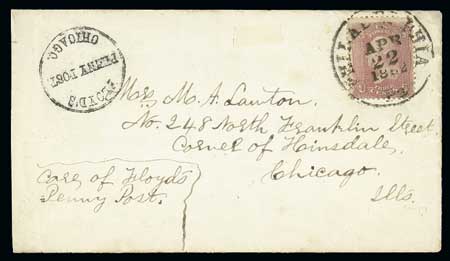 FLOYD'S
PENNY POST
CHICAGO.
PHILADELPHIA
APR
22
1862
Mrs M. A. Lawton
No. 248 North Franklin Street.
Corner of Hinsdale.
Chicago.
Ills.
Care of Floyd's
Penny Post.